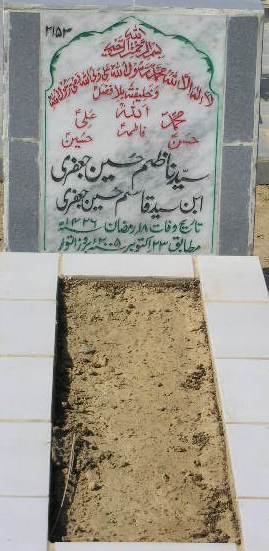 ۲۱۵۳
اللہ
بسم اللہ الرحمن الرحیم
لا الہ الا اللہ محمد رسول اللہ علی ولی اللہ وصی رسول اللہ
وخلیفتہ بلا فصل
محمدؐ اللہ علیؑ
حسنؑ فاطمہؑ حسینؑ
سید ناظم حسین جعفری
ابن سید قاسم حسین جعفری
تاریخ وفات ۱۸ رمضان ۱۴۲۶ھ
مطابق ۲۳ اکتوبر ۲۰۰۵ بروز اتوار